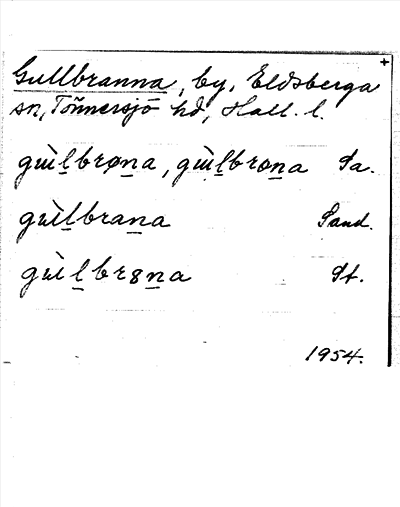 +
Gullbranna, by, Eldsberga
sn, Tönnersjö hd, Hall. l.
gùl̲brøn̲a, gùl̲bron̲a Sa.
gùl̲bran̲a Sand.
gùl̲br8n̲a St.
1954.